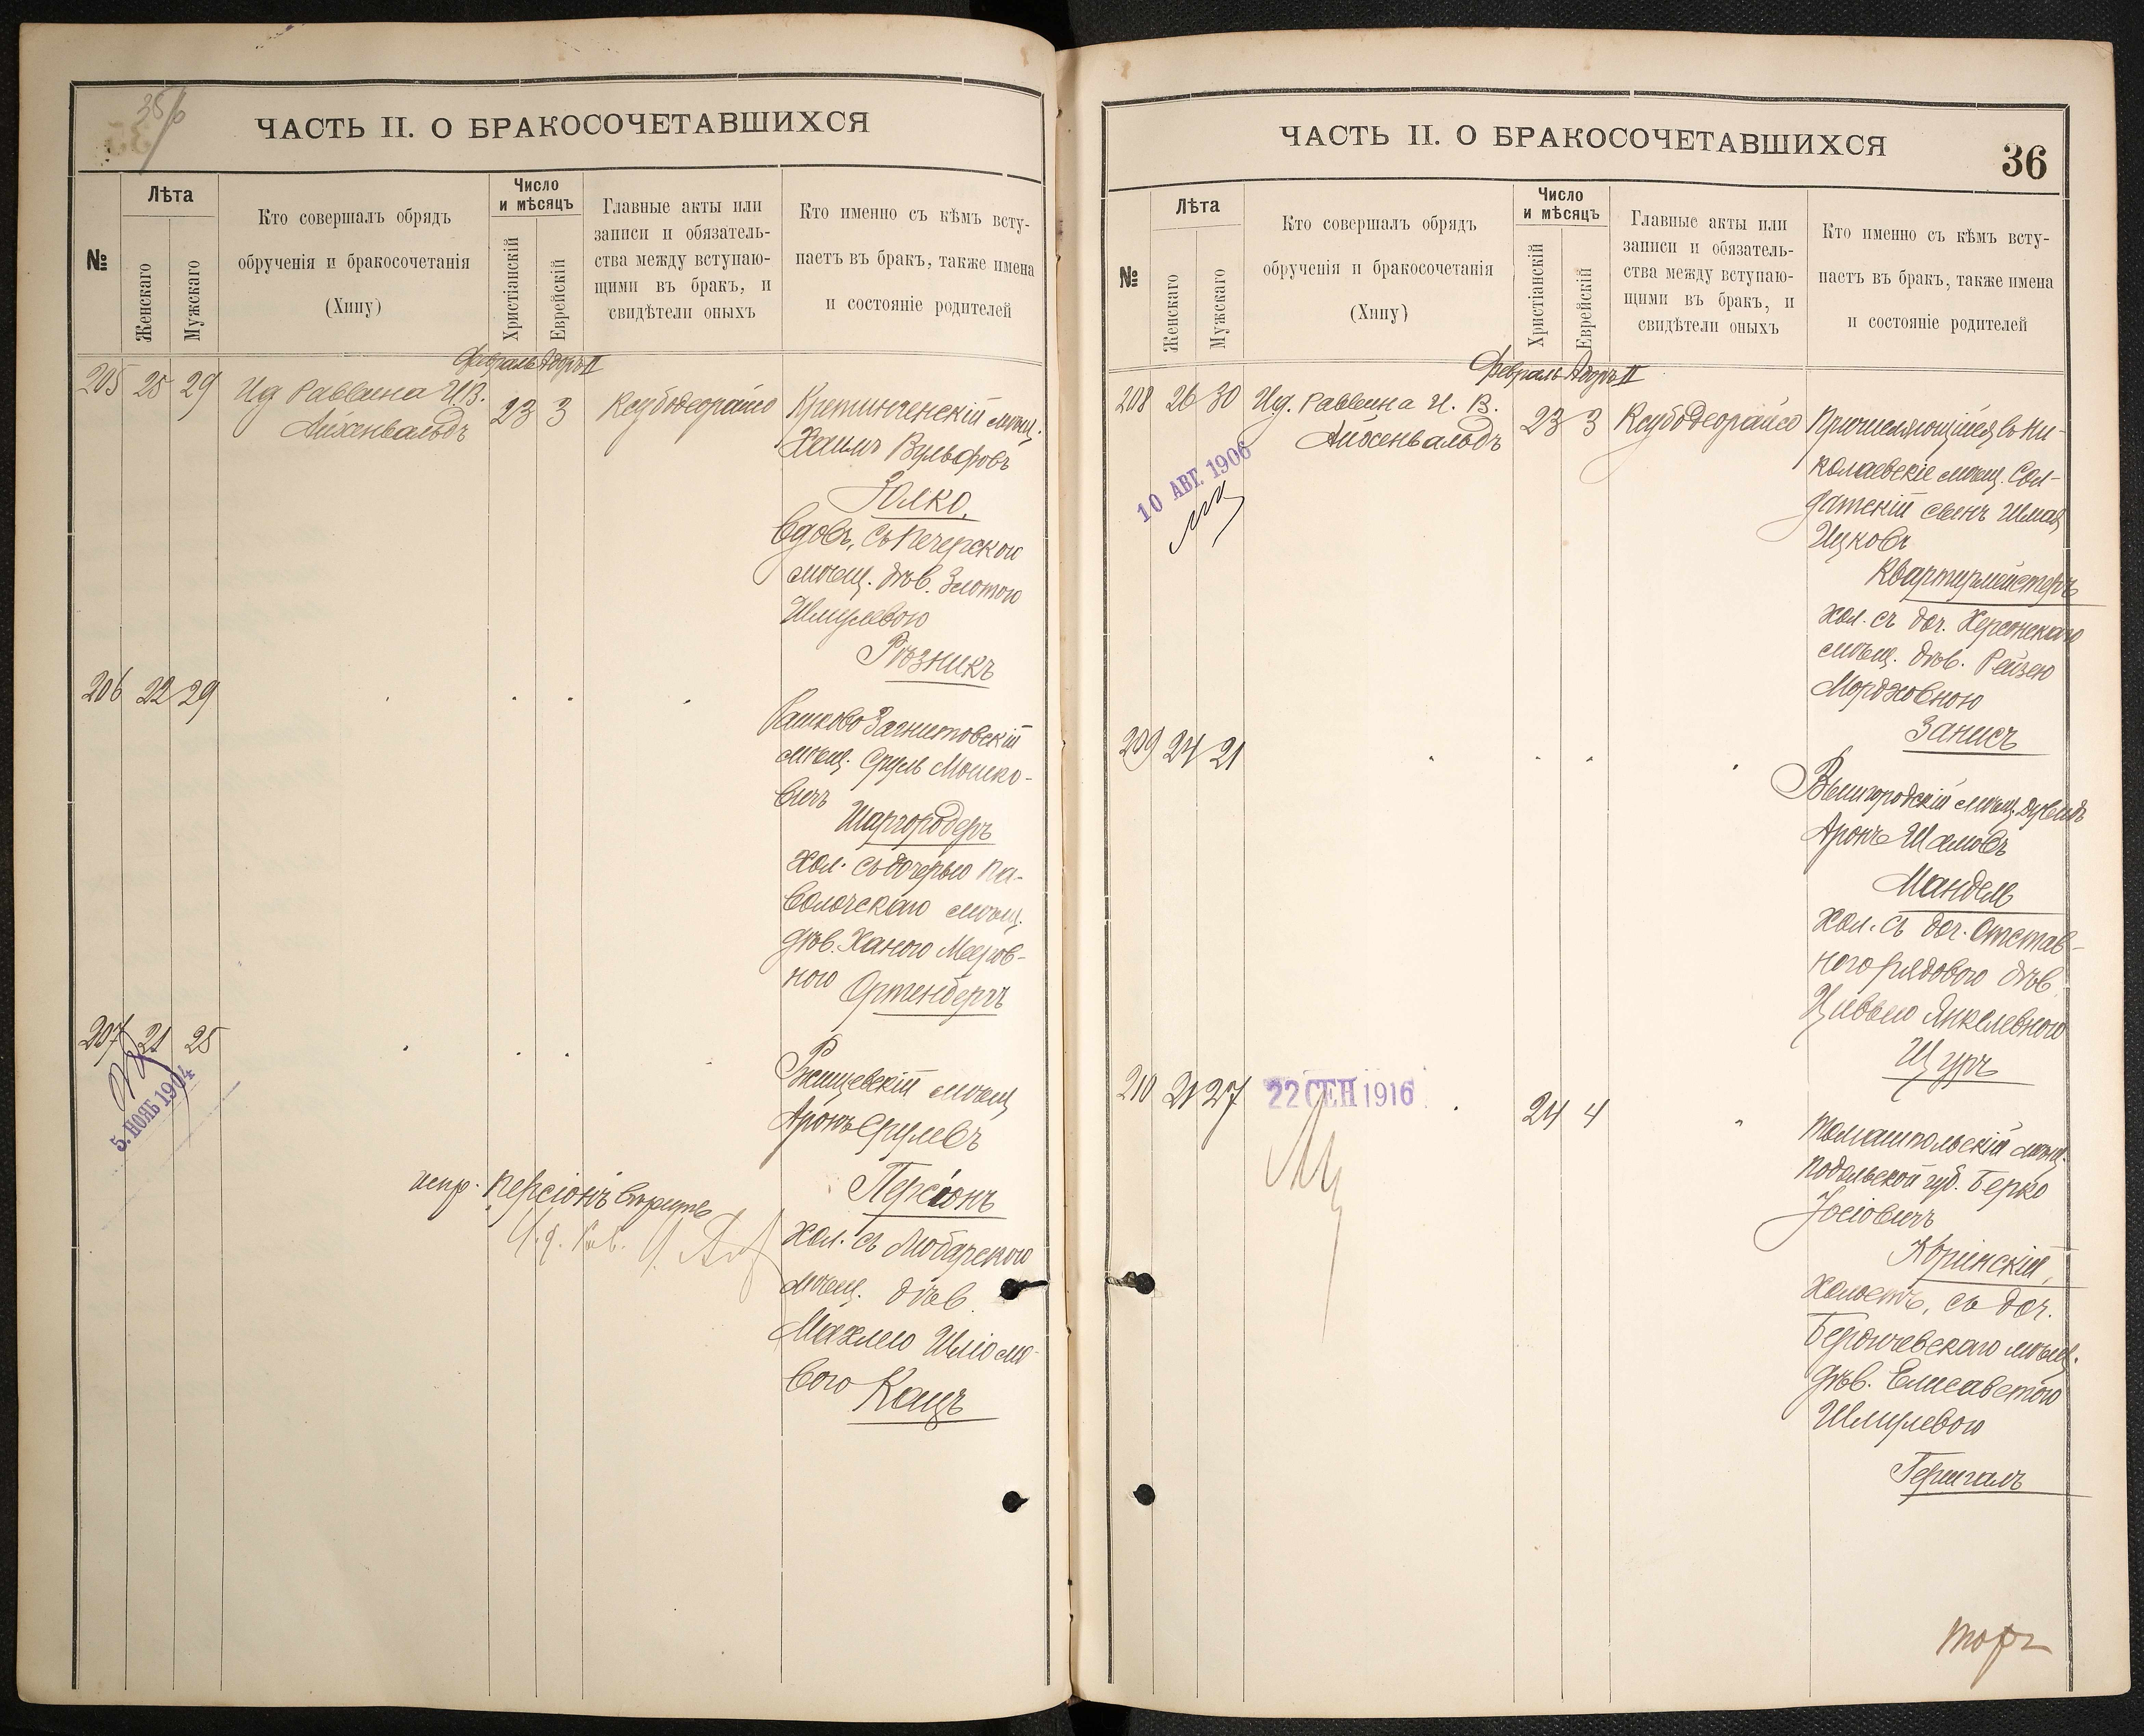 35/б
ЧАСТЬ II. О БРАКОСОЧЕТАВШИХСЯ
№
Лѣта
Женскаго
Мужскаго
Кто совершалъ обрядъ
обрученія и бракосочетанія
(Хипу)
Число
и мѣсяцъ
Христіанскій
Еврейскій
Главные акты или
записи и обязатель-
ства между вступаю-
щими въ бракъ, и
свидѣтели оныхъ
Кто именно съ кѣмъ всту-
паетъ въ бракъ, также имена
и состояніе родителей
Февраль Адоръ II
205 25 29 Ид Раввина И.В.
Айзенвальдъ
23 3 Ксубодеорайсо
Кретингенскій мѣщ.
Хаимъ Вульфовъ
Золко,
вдовъ, съ Печерскою
мѣщ. дѣв. Златою
Шмулевою
Рѣзникъ
206 22 29
Рашково Загнитовскій
мѣщ. Сруль Мошко-
вичъ
Шаргородеръ
хол. съ дочерью Па-
волочскаго мѣщ.
дѣв. Ханою Мееров-
ною Ортенбергъ
207 21 25
5. НОЯБ 1904
Ржищевскій мѣщ
Аронъ Срулевъ
Персіонъ
испр. "Персіонъ" вѣрить
И. д. Рав.
хол. съ Любарскою
мѣщ. дѣв.
Махлею Шліомо-
вою Кацъ
ЧАСТЬ II. О БРАКОСОЧЕТАВШИХСЯ
36
№
Лѣта
Женскаго
Мужскаго
Кто совершалъ обрядъ
обрученія и бракосочетанія
(Хипу)
Число
и мѣсяцъ
Христіанскій
Еврейскій
Главные акты или
записи и обязатель-
ства между вступаю-
щими въ бракъ, и
свидѣтели оныхъ
Кто именно съ кѣмъ всту-
паетъ въ бракъ, также имена
и состояніе родителей
Февраль Адоръ II
208 26 30 Ид. Раввина И. В.
Айзенвальдъ
23 3 Ксубодеорайсо
10 АВГ. 1906
Причисляющійся въ Ни-
колаевскіе мѣщ. Сол-
датскій сынъ Шмая
Ицковъ
Квартирмейстеръ
хол. съ доч. Херсонскаго
мѣщ. дѣв. Рейзею
Мордховною
Занисъ
209 24 21
Вышгородскій мѣщ. Дувидъ
Аронъ Шамовъ
Мандель
хол. съ доч. Отстав-
ного рядового дѣв.
Цивьею Янкелевною
Щуръ
210 21 27
22 СЕН 1916
24 4
Томашпольскій мѣщ.
Подольской губ. Берко
Іосіовичъ
Коринскій,
холостъ, съ доч.
Бердичевскаго мѣщ.
дѣв. Елисаветою
Шмулевою
Гершгалъ